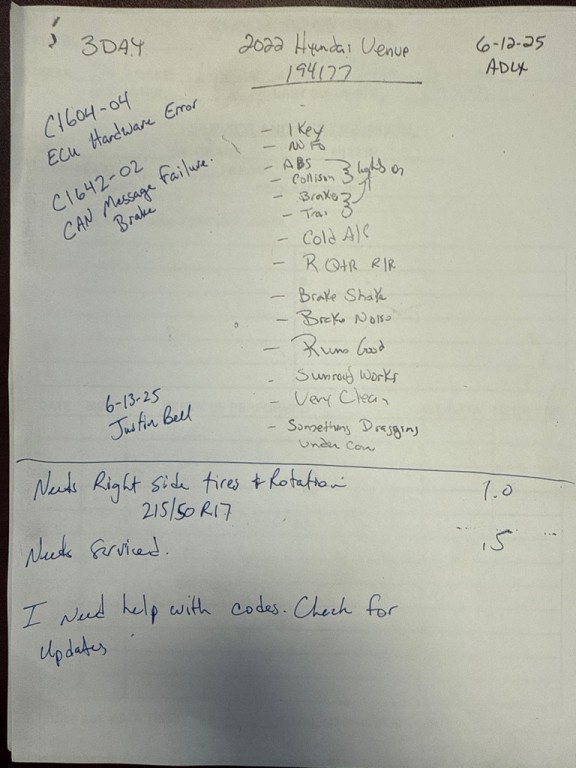 3 DAY
2022 Hyundai Venue
194177
6-12-25
ADLX
C1604-04
ECU Hardware Error
C1642-02
CAN Message Failure.
Brake
- 1 Key
- NO FO
- ABS
- Collison
lights on
- Brake
- Trac
- Cold A/C
- R Qtr R/R
- Brake Shake
- Brake Noise
- Runs Good
- Sunroof Works
- Very Clean
- Something Dragging
under car
6-13-25
Justin Bell
Needs Right side tires & Rotation
215/50 R17
1.0
Needs Serviced.
.5
I Need help with codes. Check for
Updates